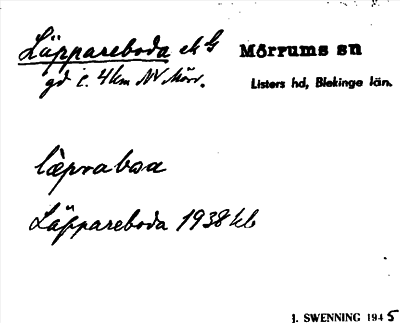 Läppareboda ek G Mörrums sn
gd c. 4 km NV Mörr. Listers hd, Blekinge län.
læprabǝa
Läppareboda 1938 kb
J. SWENNING 1945